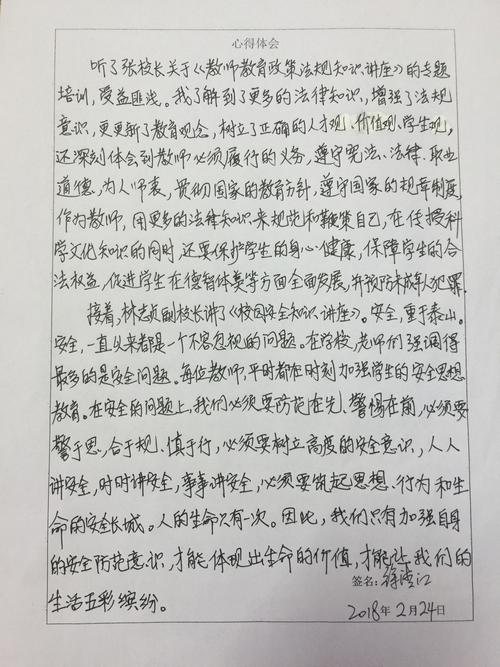 心得体会
听了张校长关于《教师教育政策法规知识讲座》的专题
培训,受益匪浅。我了解到了更多的法律知识,增强了法规
意识,更更新了教育观念,树立了正确的人才观、价值观、学生观,
还深刻体会到教师必须履行的义务,遵守宪法、法律、职业
道德,为人师表,贯彻国家的教育方针,遵守国家的规章制度,
作为教师,用更多的法律知识来规范和鞭策自己,在传授科
学文化知识的同时,还要保护学生的身心健康,保障学生的合
法权益,促进学生在德智体美等方面全面发展,并预防未成年人犯罪.
接着,林志贞副校长讲了《校园安全知识讲座》。安全,重于泰山。
安全,一直以来都是一个不容忽视的问题。在学校,老师们强调得
最多的是安全问题。每位教师,平时都在时刻加强学生的安全思想
教育。在安全的问题上,我们必须要防范在先、警惕在前,必须要
警于思,合于规、慎于行,必须要树立高度的安全意识,人人
讲安全,时时讲安全,事事讲安全,必须要筑起思想、行为和生
命的安全长城。人的生命只有一次。因此,我们只有加强自身
的安全防范意识,才能体现出生命的价值,才能让我们的
生活五彩缤纷。
签名:徐江
2018年2月24日